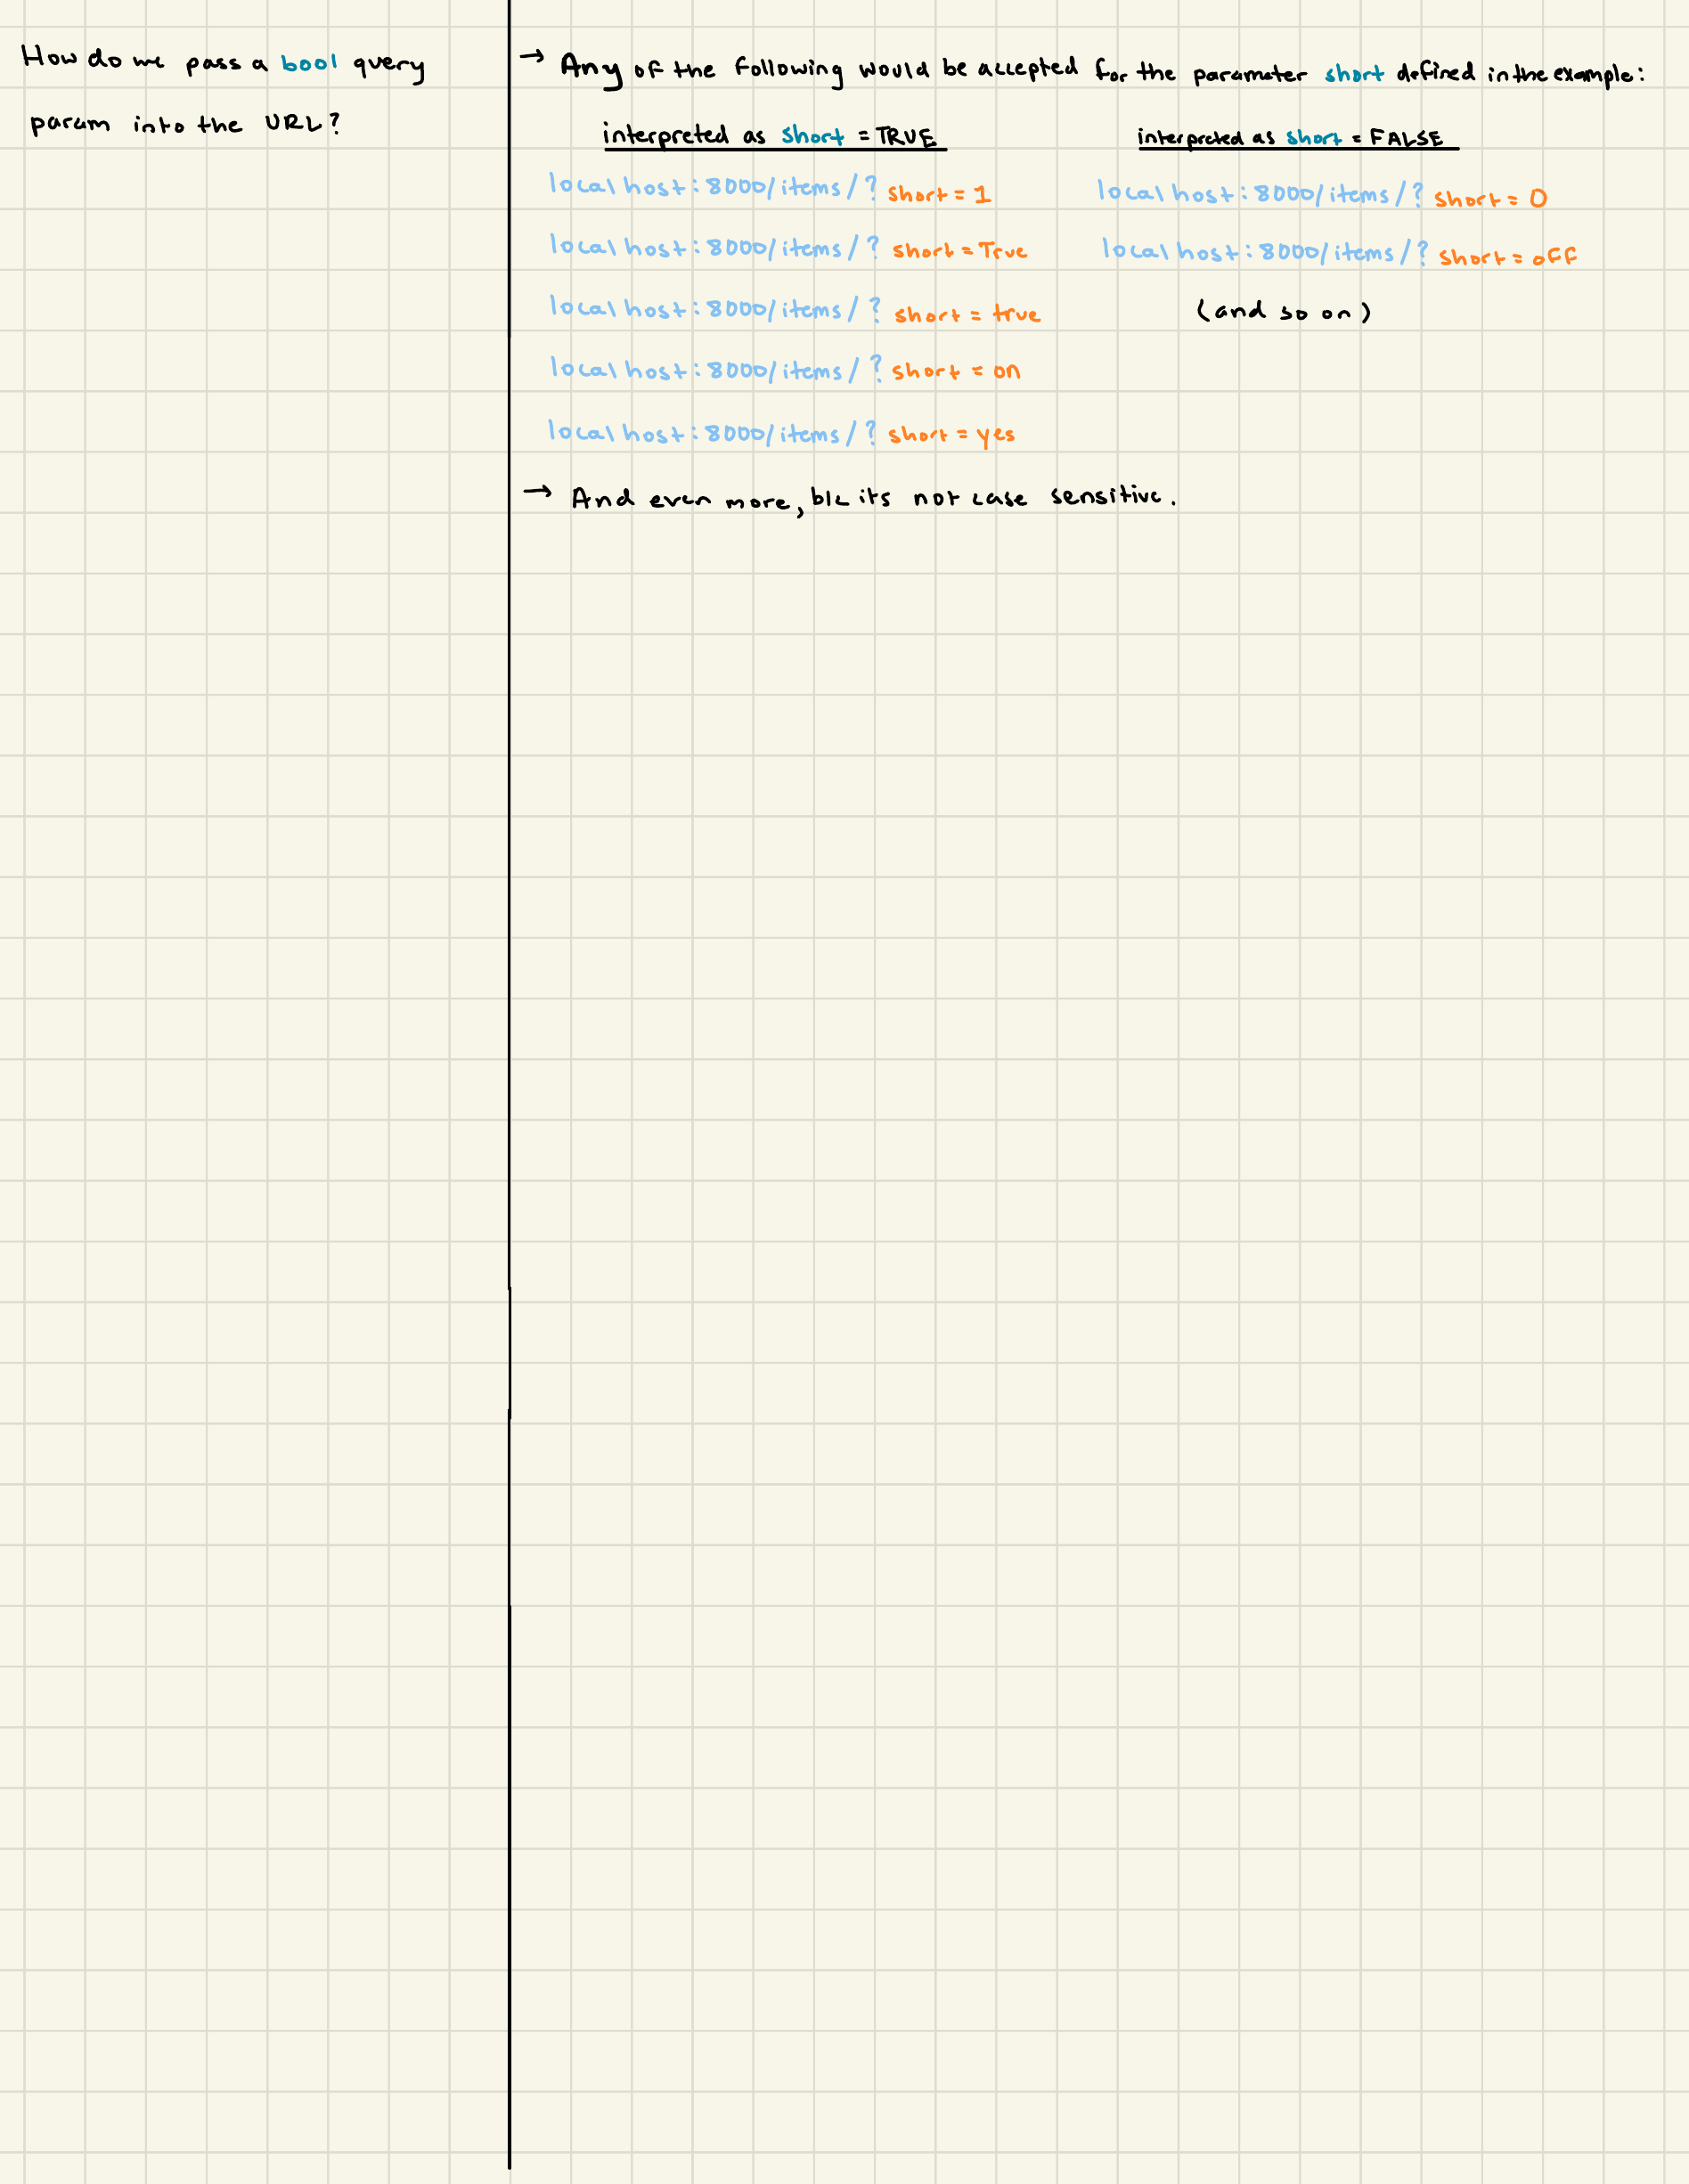 How do we pass a bool query
param into the URL?
→ Any of the following would be accepted for the parameter short defined in the example:
interpreted as short = TRUE
localhost:8000/items/?short=1
localhost:8000/items/?short=True
localhost:8000/items/?short=true
localhost:8000/items/?short=on
localhost:8000/items/?short=yes
interpreted as short = FALSE
localhost:8000/items/?short=0
localhost:8000/items/?short=off
(and so on)
→ And even more, b/c its not case sensitive.